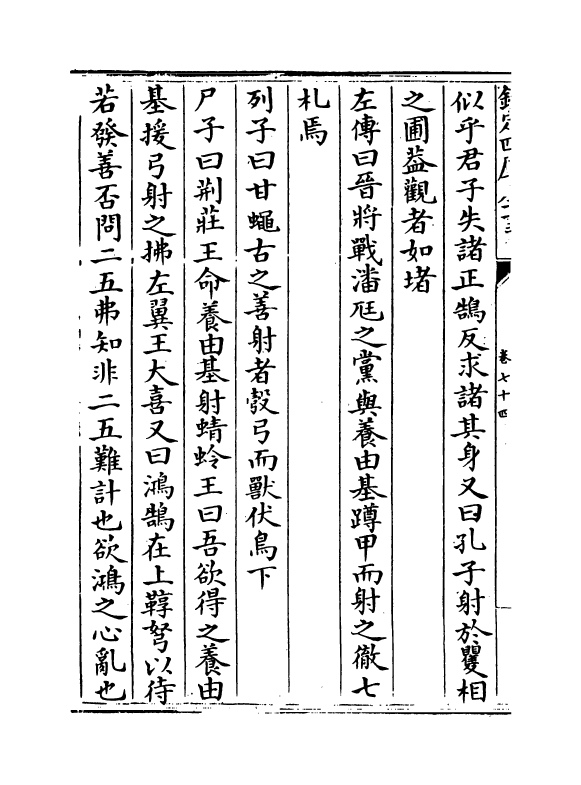 似乎君子失諸正鵠反求諸其身又曰孔子射於矍相
之圃葢觀者如堵
左傳曰晉將戰潘尫之黨與養由基蹲甲而射之徹七
札焉
列子曰甘蠅古之善射者彀弓而獸伏鳥下
尸子曰荆莊王命養由基射蜻蛉王曰吾欲得之養由
基援弓射之拂左翼王大喜又曰鴻鵠在上䩨弩以待
若發善否問二五弗知非二五難計也欲鴻之心亂也
卷七十四